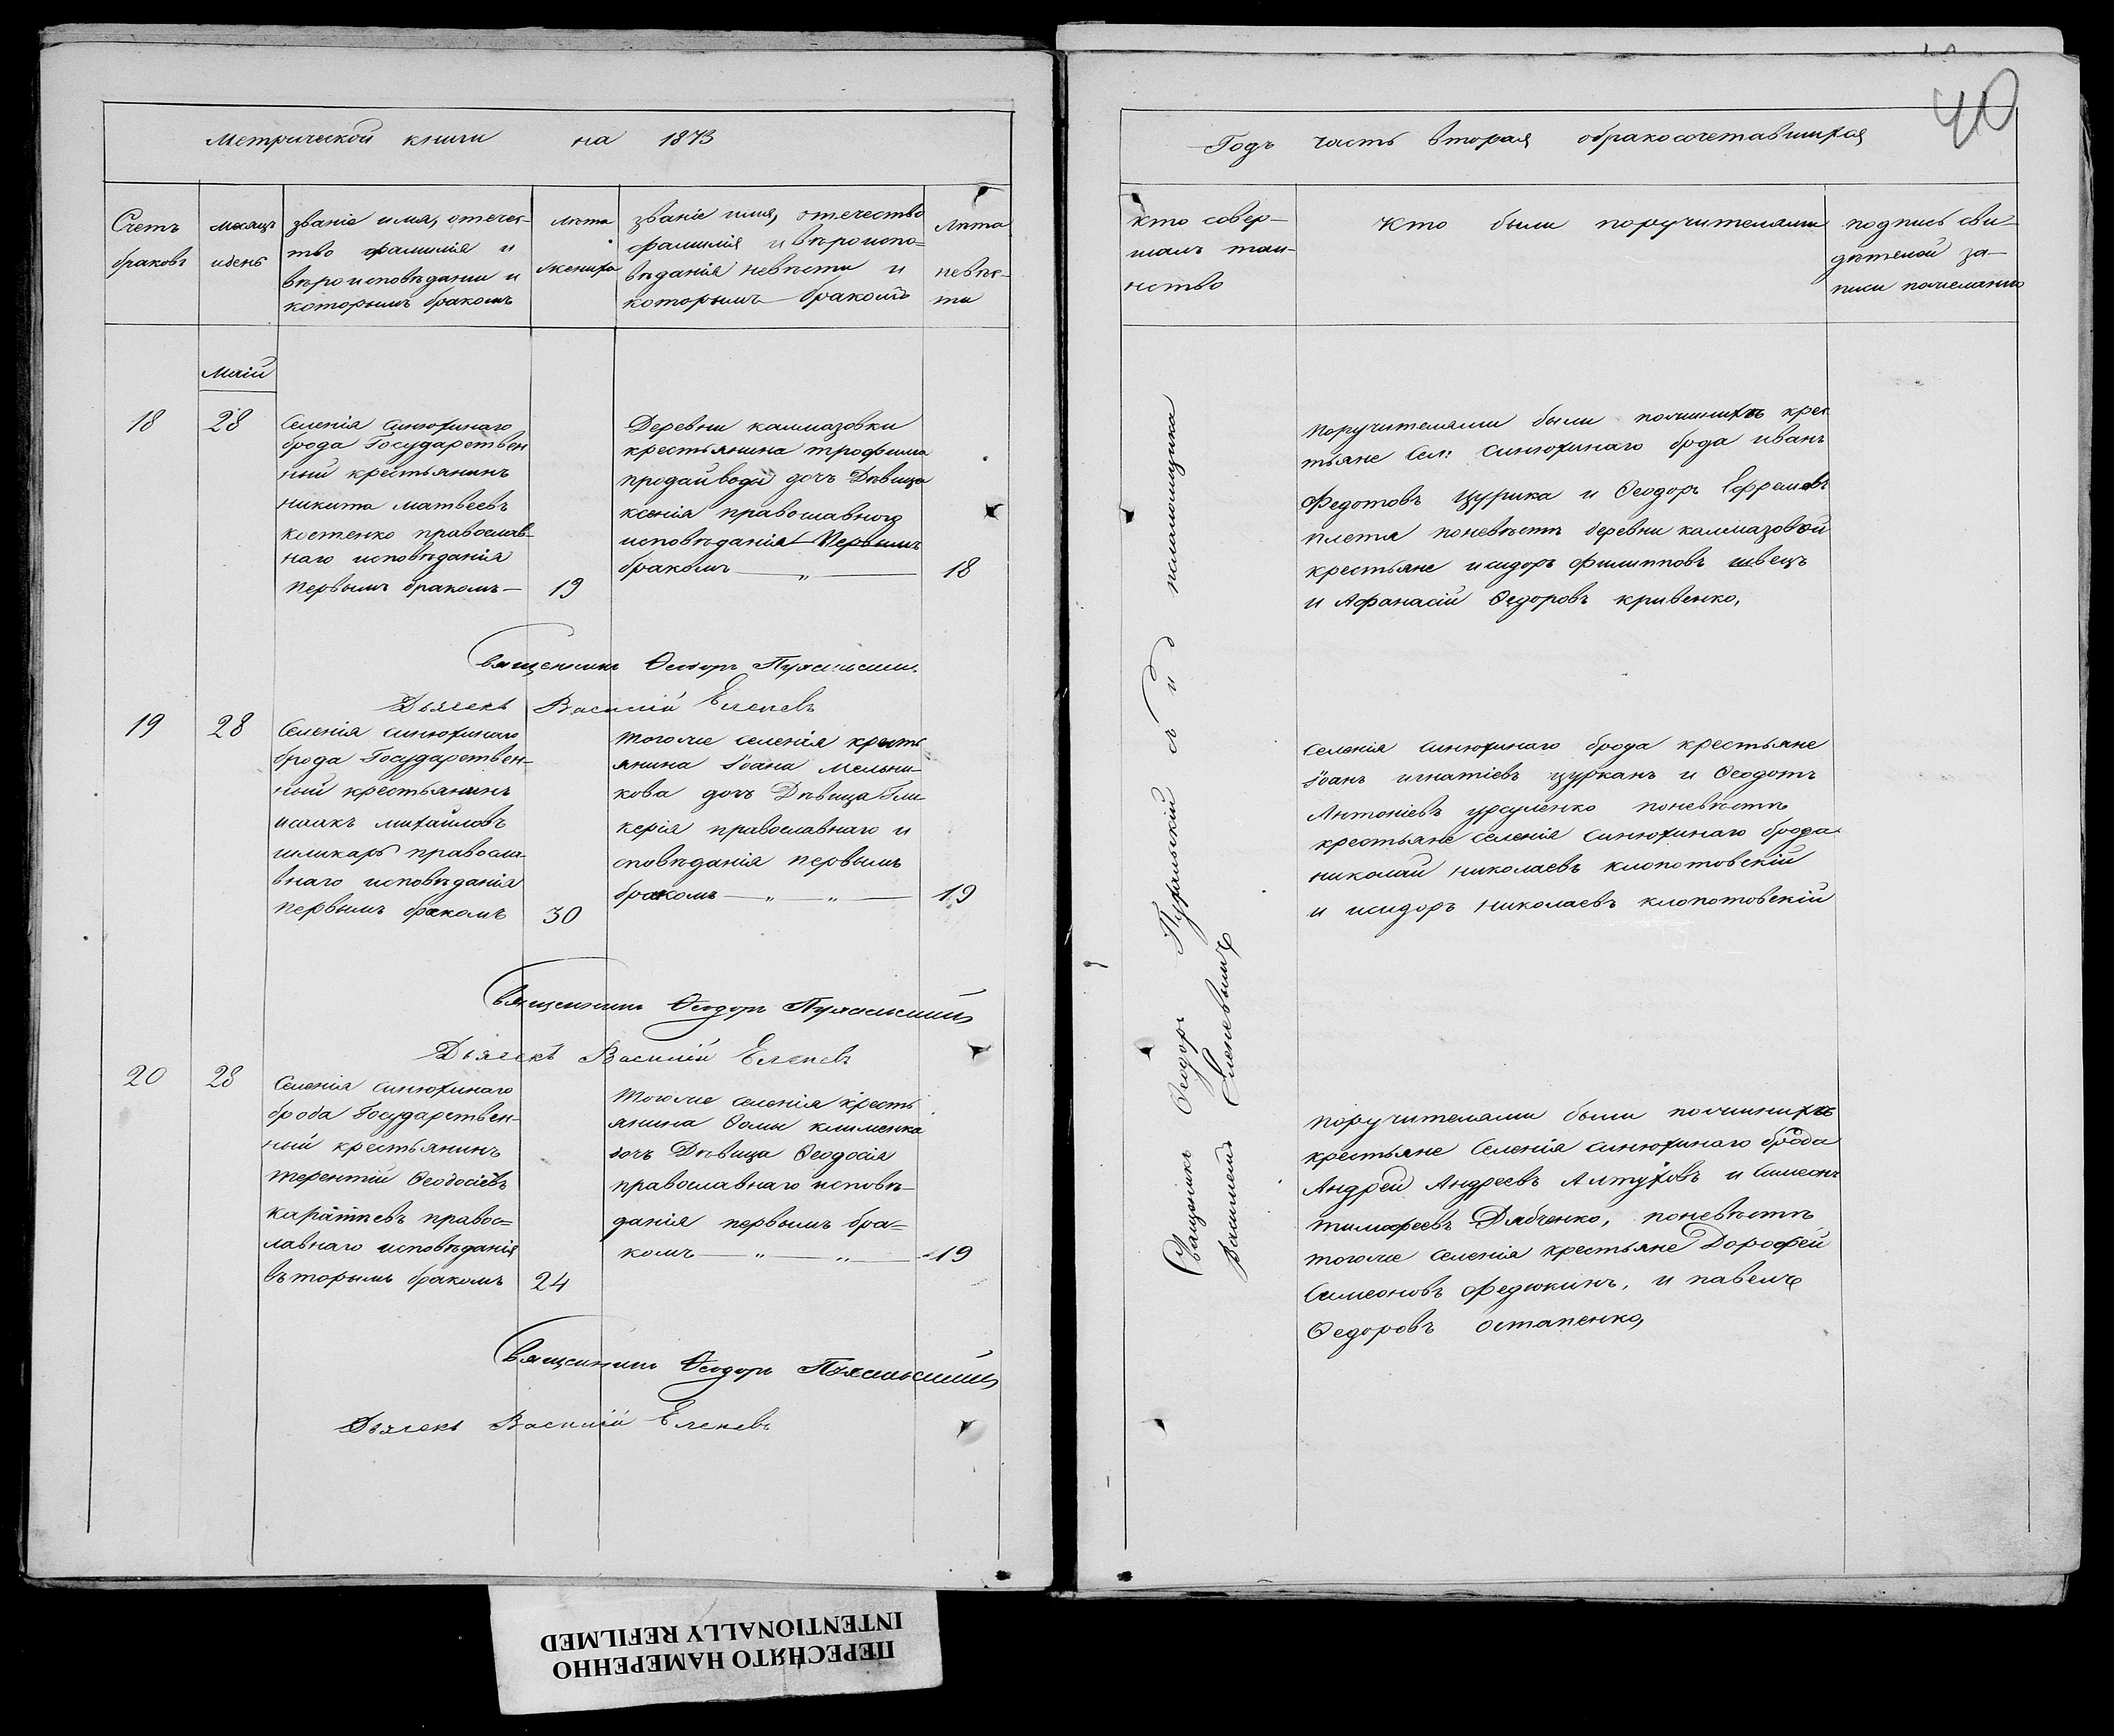 Метрической книги на 1873
Счетъ браковъ
месяцъ идень
званіе имя, отечес-
тво фамилія и
вѣроисповѣдании и
которымъ бракомъ
лѣта жениха
званіе имя, отечество
фамилія и вѣроиспо=
вѣданія невѣсти и
которымъ бракомъ
лѣта невѣс-
ти
Маій
18
28
Селенія синюхинаго
брода Государствен
ный крестьянинъ
никита матвеевъ
костенко православ-
наго исповѣданія
первымъ бракомъ —
19
Деревни калмазовки
крестьянина трофима
продайвода дочъ Дѣвица
ксенія православного
исповѣданія Первымъ
бракомъ — „ —
18
Священникъ Ѳеодоръ
Дьячекъ Василій Еленевъ
19
28
Селенія синюхинаго
брода Государствен-
ный крестьянинъ
исаакъ михайловъ
шликарь правосла-
внаго исповѣданія
первымъ бракомъ
30
тогоже селенія кресть
янина Іоана мельни-
кова дочъ Дѣвица Гли
керія православнаго и
сповѣданія первымъ
бракомъ — „ — „ —
19
Священникъ Ѳеодоръ
Дьячекъ Василій Еленевъ
20
28
Селенія синюхинаго
брода Государствен-
ный крестьянинъ
терентій Ѳеодосіевъ
правос=
лавнаго исповѣданія
въторымъ бракомъ
24
тогоже селенія кресть
янина Ѳомы клименка
дочъ Дѣвица Ѳеодосія
православнаго исповѣ-
данія первымъ бра=
комъ — „ — „ —
19
Священникъ Ѳеодоръ
Дьячекъ Василій Еленевъ
40
Годъ часть вторая обракосочетавшихся
кто совер-
шалъ таи-
нство
Кто были поручителями
подпись сви-
дѣтелей за-
писи пожеланию
Священникъ Ѳеодоръ съ и д псаломщика
Василіемъ Еленевымъ
поручителями были пожинихѣ крес
тьяне Сел: синюхинаго брода иванъ
Федотовъ цурика и Ѳеодоръ Ефремовъ
плетя поневѣстѣ деревни калмазовой
крестьяне исидоръ филипповъ швецъ
и Афанасій Ѳедоровъ кривенко,
Селенія синюхинаго брода крестьяне
Іоанъ игнатіевъ цурканъ и Ѳеодотъ
Антоніевъ урсуленко поневѣстѣ
крестьяне селенія синюхинаго брода
николай николаевъ клопотовскій
и исидоръ николаевъ клопотовскій
поручителями были пожинихѣ
крестьяне Селенія синюхинаго брода
Андрей Андреевъ Алтуховъ и Симеонъ
тимофеевъ Дябченко, поневѣстѣ
тогоже селенія крестьяне Дорофей
Симеоновъ федюкинъ, и павелъ
Ѳедоровъ остапенко,
ПЕРЕСНЯТО НАМЕРЕННО
INTENTIONALLY REFILMED